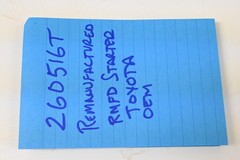 260516T
REMANUFACTURED
RMFD STARTER
TOYOTA
OEM